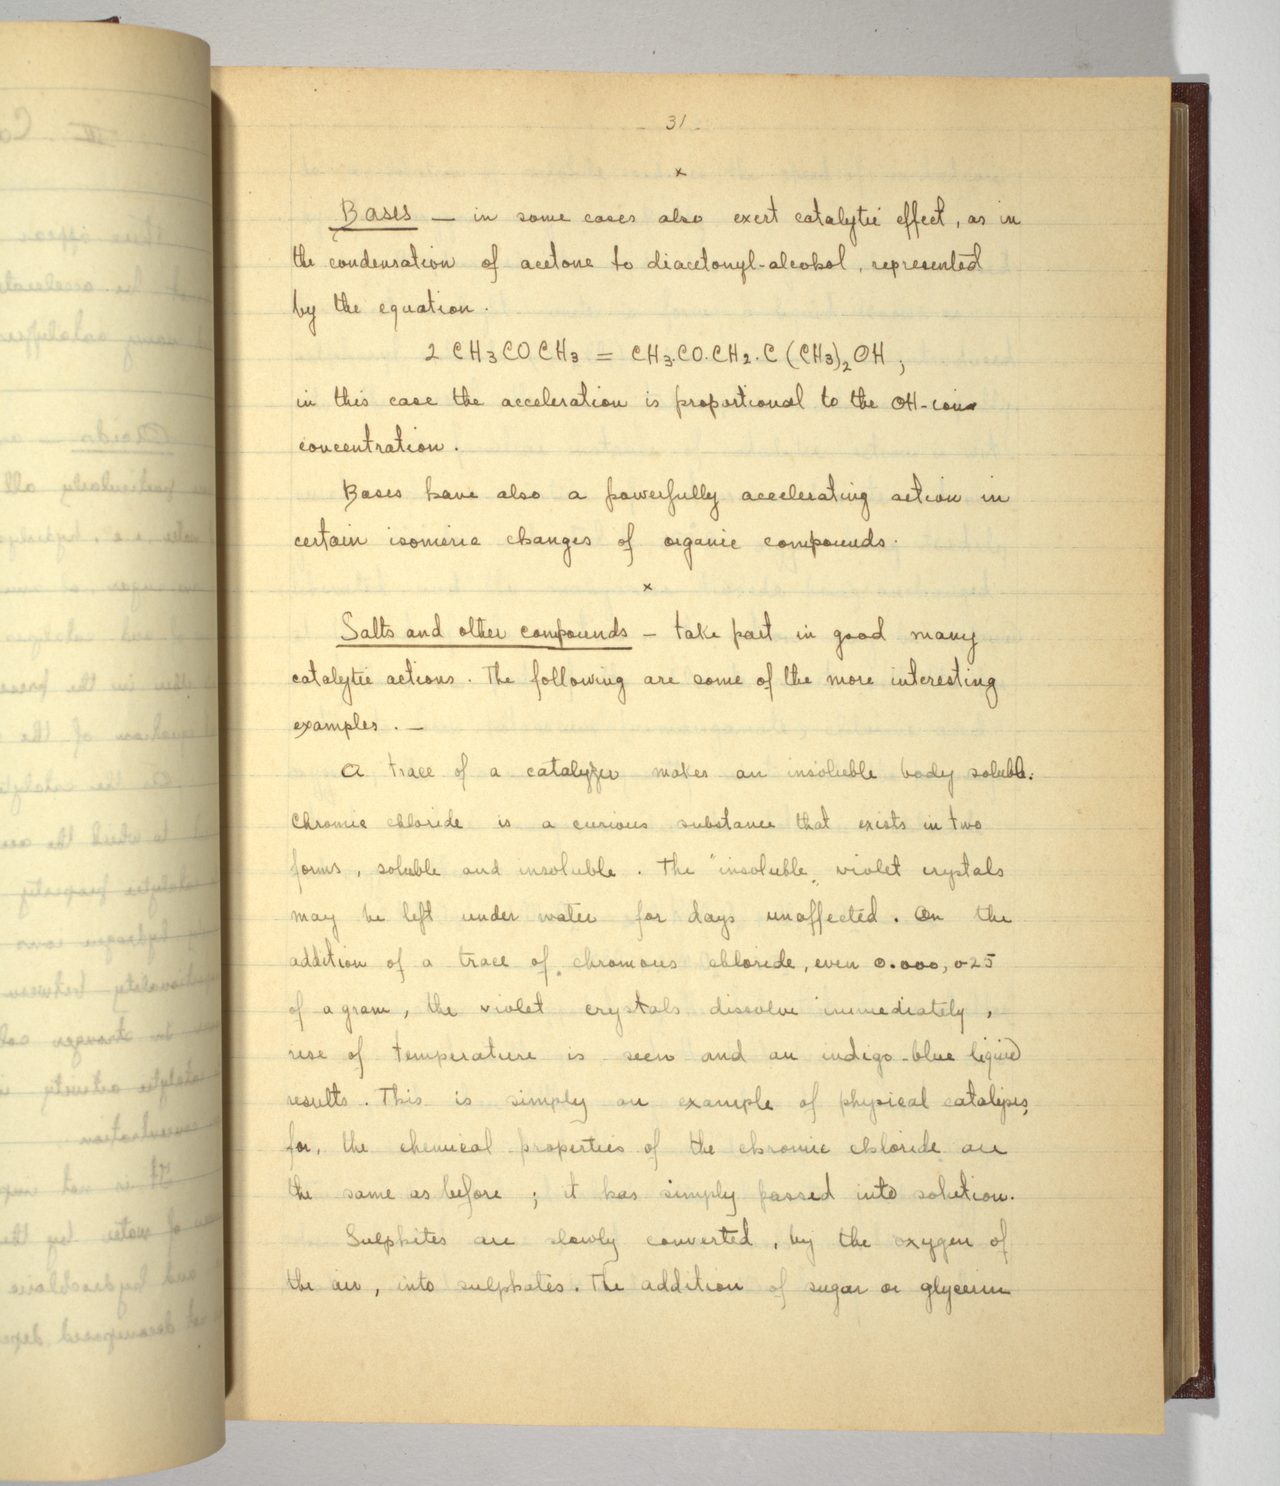 - 31 -
x
Bases — in some cases also exert catalytic effect, as in
the condensation of acetone to diacetonyl-alcohol, represented
by the equation.
2 CH3COCH3 = CH3.CO.CH2.C(CH3)2OH;
in this case the acceleration is proportional to the OH-ion
concentration.
Bases have also a powerfully accelerating action in
certain isomeric changes of organic compounds.
x
Salts and other compounds — take part in good many
catalytic actions. The following are some of the more interesting
examples. —
A trace of a catalyzer makes an insoluble body soluble.
Chromic chloride is a curious substance that exists in two
forms, soluble and insoluble. The "insoluble" violet crystals
may be left under water for days unaffected. On the
addition of a trace of chromous chloride, even 0.000,025
of a gram, the violet crystals dissolve immediately,
rise of temperature is seen and an indigo-blue liquid
results. This is simply an example of physical catalysis,
for, the chemical properties of the chromic chloride are
the same as before; it has simply passed into solution.
Sulphites are slowly converted, by the oxygen of
the air, into sulphates. The addition of sugar or glycerin